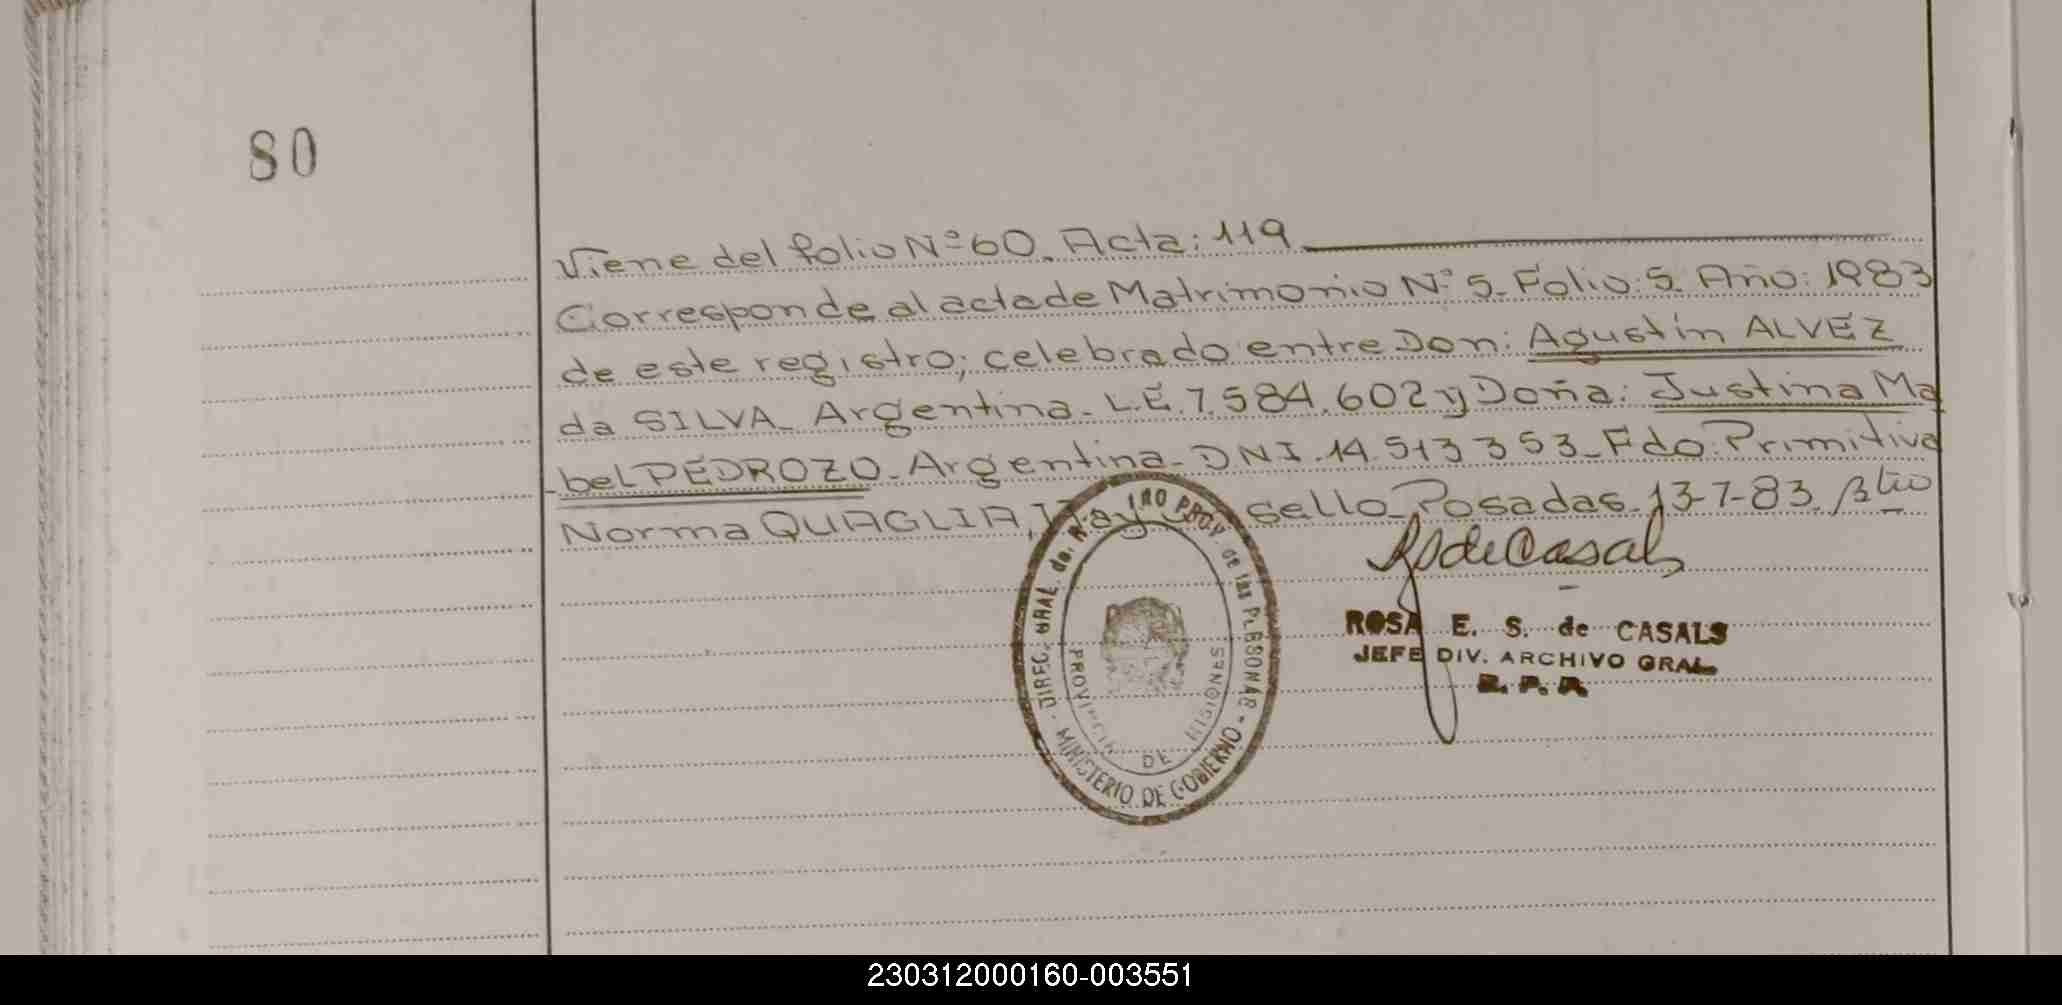 80
Viene del folio Nº 60. Acta: 119
Corresponde al acta de Matrimonio Nº 5. Folio: 5. Año: 1983
de este registro; celebrado entre Don: Agustín ALVEZ
da SILVA_ Argentina_ L.E. 7.584.602 y Doña: Justina Ma
bel PEDROZO_ Argentina_ DNI. 14.513353_ Fdo: Primitiva
Norma QUAGLIA, Hay sello_ Posadas. 13-7-83.
RSdeCasals
ROSA E. S. de CASALS
JEFE DIV. ARCHIVO GRAL.
R. P. P.
DIREC. GRAL. del PROV. de las PERSONAS - MINISTERIO DE GOBIERNO
PROVINCIA DE MISIONES
230312000160-003551